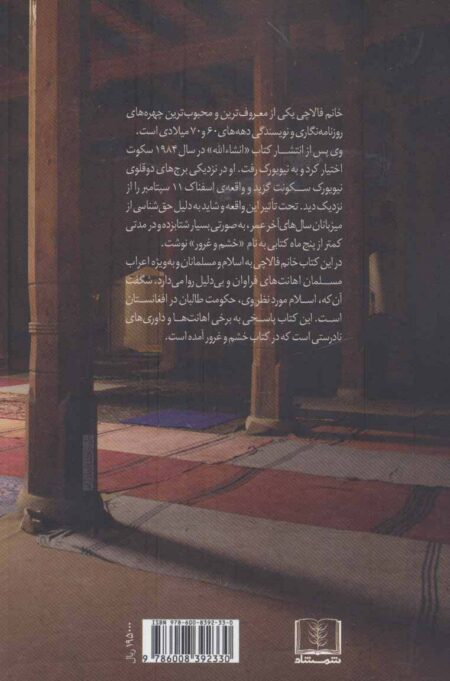 خانم فالاچی یکی از معروف‌ترین و محبوب‌ترین چهره‌های
روزنامه‌نگاری و نویسندگی دهه‌های ۶۰ و ۷۰ میلادی است.
وی پس از انتشار کتاب «انشاءالله» در سال ۱۹۸۴ سکوت
اختیار کرد و به نیویورک رفت. او در نزدیکی برج‌های دوقلوی
نیویورک سکونت گزید و واقعه‌ی اسفناک ۱۱ سپتامبر را از
نزدیک دید. تحت تأثیر این واقعه و شاید به دلیل حق‌شناسی از
میزبانان سال‌های آخر عمر، به صورتی بسیار شتابزده و در مدتی
کمتر از پنج ماه کتابی به نام «خشم و غرور» نوشت.
در این کتاب خانم فالاچی به اسلام و مسلمانان و به‌ویژه اعراب
مسلمان اهانت‌های فراوان و بی‌دلیل روا می‌دارد. شگفت
آن که، اسلام مورد نظر وی، حکومت طالبان در افغانستان
است. این کتاب پاسخی به برخی اهانت‌ها و داوری‌های
نادرستی است که در کتاب خشم و غرور آمده است.
ISBN 978-600-8392-33-0
9 786008 392330
۱۹۵۰۰۰ ریال
شمشاد